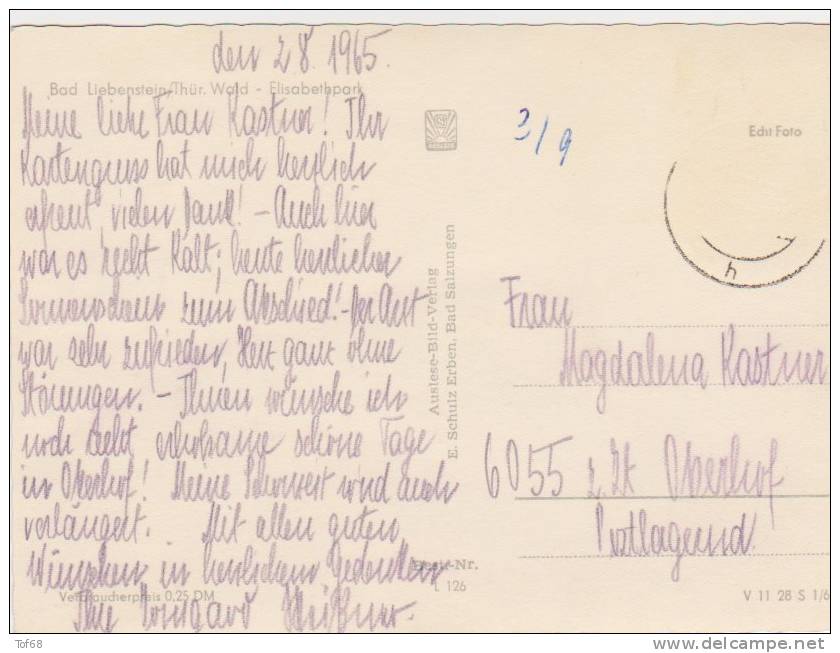 den 28. 1965.
Bad Liebenstein/Thür. Wald - Elisabethpark
Meine liebe Frau Kastner! Ihr
Kartengruss hat mich herzlich
erfreut, vielen Dank! - Auch hier
war es recht kalt; heute herrlicher
Sonnenschein zum Abschied! - Der Arzt
war sehr zufrieden, Herz ganz ohne
Störungen. - Ihnen wünsche ich
noch recht erholsame schöne Tage
in Oberhof! Meine wird auch
verlängert. Mit allen guten
Wünschen in herzlichem Gedenken
Ihre Irmgard
Verbraucherpreis 0,25 DM
Auslese-Bild-Verlag
E. Schulz Erben, Bad Salzungen
Bestr-Nr.
L 126
3/9
Echt Foto
4
Frau
Magdalena Kastner
6055 z. Zt. Oberhof
Postlagernd
V 11 28 S 1/6
Tof68